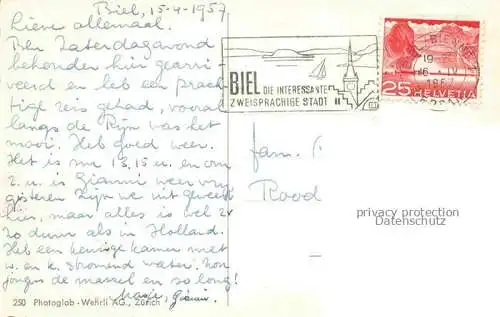 Biel, 15-4-1957
Lieve allemaal.
Ben Zaterdagavond
behouden hier gearri-
veerd en heb een prach
tige reis gehad, vooral
langs de Rijn was het
mooi. Heb goed weer.
Het is nu 13,15 u. en om
2 u. is Gianni weer vrij
gisteren zijn we uit geweest
hier, maar alles is wel 2x
zo duur als in Holland.
Heb een keurige kamer met
w. en k. stromend water. Nou
jongens de massel en so long!
Gianni.
250 Photoglob - Wehrli AG., Zürich
BIEL DIE INTERESSANTE
ZWEISPRACHIGE STADT
19
16. IV
1957
25 HELVETIA
fam.
Rood
privacy protection
Datenschutz